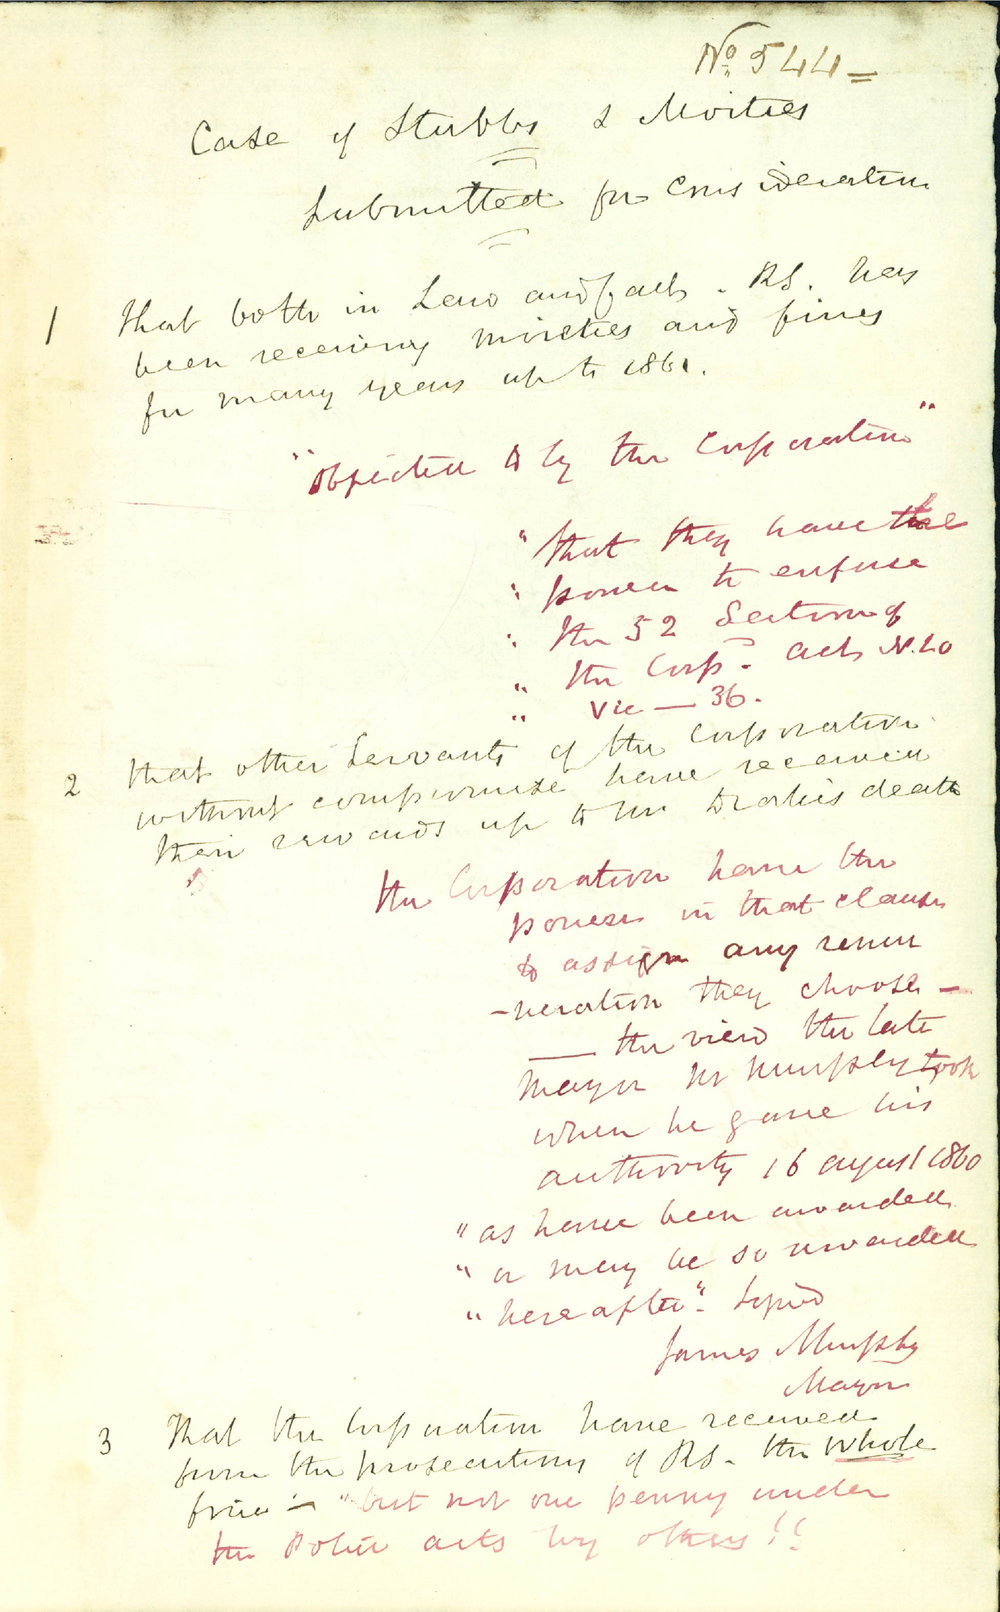 No. 544 =
Case of Stubbs & Moities
Submitted for Consideration
1 That both in Law and facts - RS. has
been receiving moieties and fines
for many years up to 1861.
"Objected to by the Corporation"
"that they have the
" power to enforce
" the 52 Section of
" the Corpn. Acts No. 20
" Vic — 36.
2 That other Servants of the Corporation
without compromise have received
their rewards up to Mr Drakes death
the Corporation have the
power in that clause
to assign any remu
-neration they choose —
— the view the late
Mayor Mr Murphy took
when he gave his
authority 16 August 1860
" as have been awarded
" or may be so awarded
" hereafter". Signed
James Murphy
Mayor
3 That the Corporation have received
from the prosecutions of RS. the whole
fine — "but not one penny under
the Police acts by others!!